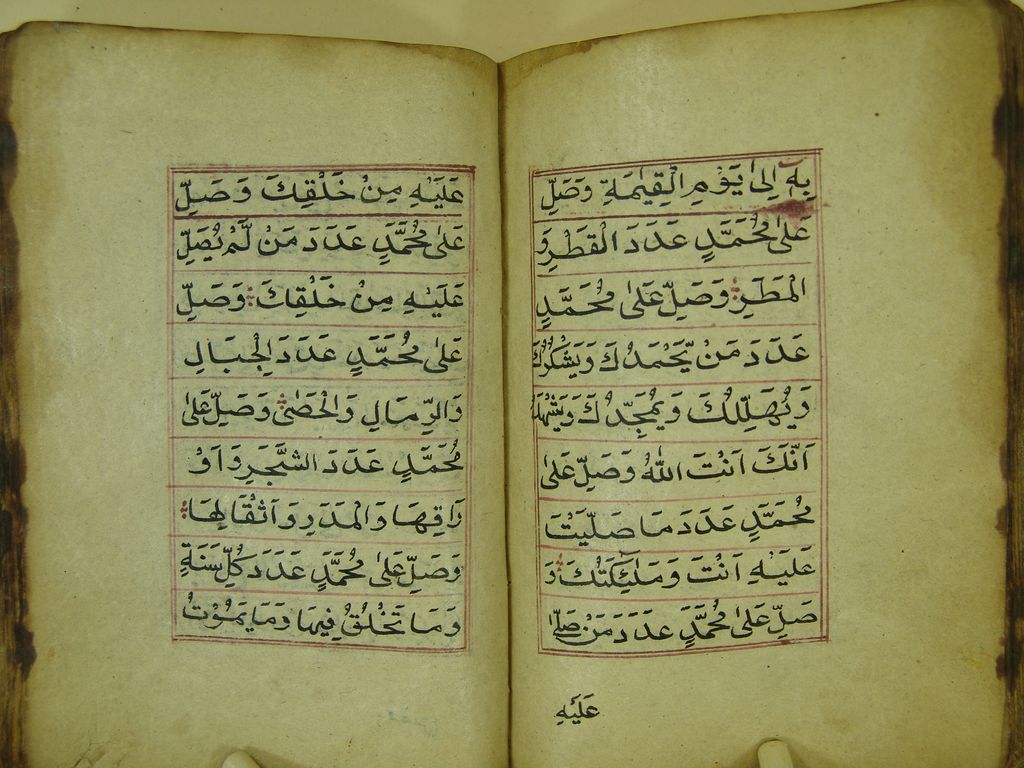 بِهٖٓ اِلٰى يَوْمِ الْقِيٰمَةِ وَصَلِّ
عَلٰى مُحَمَّدٍ عَدَدَ الْقَطْرِ وَ
الْمَطَرِ وَصَلِّ عَلٰى مُحَمَّدٍ
عَدَدَ مَنْ يَّحْمَدُكَ وَيَشْكُرُكَ
وَيُهَلِّلُكَ وَيُمَجِّدُكَ وَيَشْهَدُ
اَنَّكَ اَنْتَ اللّٰهُ وَصَلِّ عَلٰى
مُحَمَّدٍ عَدَدَ مَا صَلَّيْتَ
عَلَيْهِ اَنْتَ وَمَلٰٓئِكَتُكَ وَ
صَلِّ عَلٰى مُحَمَّدٍ عَدَدَ مَنْ صَلّٰى
عَلَيْهِ
عَلَيْهِ مِنْ خَلْقِكَ وَصَلِّ
عَلٰى مُحَمَّدٍ عَدَدَ مَنْ لَّمْ يُصَلِّ
عَلَيْهِ مِنْ خَلْقِكَ وَصَلِّ
عَلٰى مُحَمَّدٍ عَدَدَ الْجِبَالِ
وَالرِّمَالِ وَالْحَصٰى وَصَلِّ عَلٰى
مُحَمَّدٍ عَدَدَ الشَّجَرِ وَاَوْ
رَاقِهَا وَالْمَدَرِ وَاَثْقَالِهَا
وَصَلِّ عَلٰى مُحَمَّدٍ عَدَدَ كُلِّ سَنَةٍ
وَمَا تَخْلُقُ فِيهَا وَمَا يَمُوْتُ